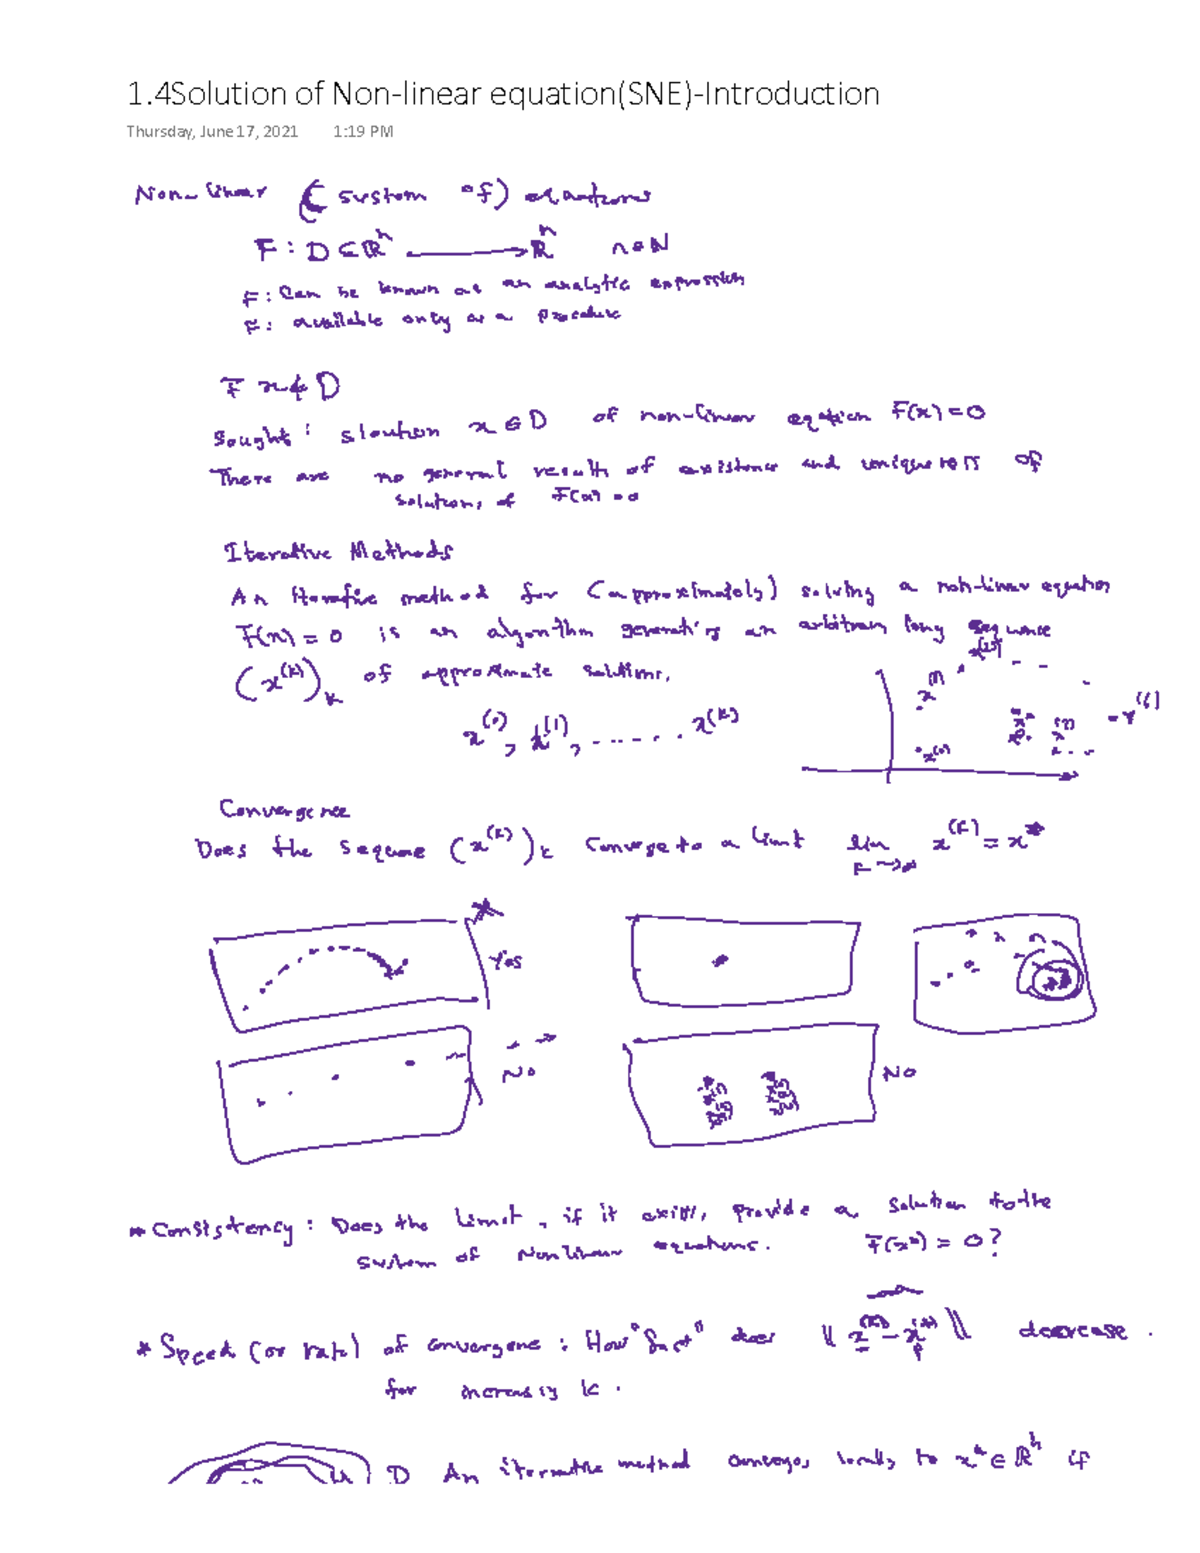 1.4Solution of Non-linear equation(SNE)-Introduction
Thursday, June 17, 2021 1:19 PM
Non-linear (system of) equations
F : D ⊆ ℝⁿ ⟶ ℝⁿ n ∈ N
F: Can be known as an analytic expression
F: available only as a procedure
F D
Sought : sloution x ∈ D of non-linear eqation F(x) = 0
There are no general results of existence and uniqueness of
solutions of F(x) = 0
Iterative Methods
An iterative method for (approximately) solving a non-linear equation
F(x) = 0 is an algorithm generating an arbitrary long sequence
(x⁽ᵏ⁾)ₖ of approximate solutions.
x⁽⁰⁾, x⁽¹⁾, ...... x⁽ᵏ⁾
x⁽¹⁾
x⁽⁰⁾
Convergence
Does the sequence (x⁽ᵏ⁾)ₖ Converge to a limit lim x⁽ᵏ⁾ = x*
k→∞
Yes
No
NO
* Consistency : Does the limit, if it exists, provide a solution to the
system of Nonlinear equations. F(x*) = 0 ?
* Speed (or rate) of convergence : How "fast" does ‖x⁽ᵏ⁾ - x⁽*⁾‖ decrease.
for increasing k.
D An iterative method converges locally to x* ∈ ℝⁿ if